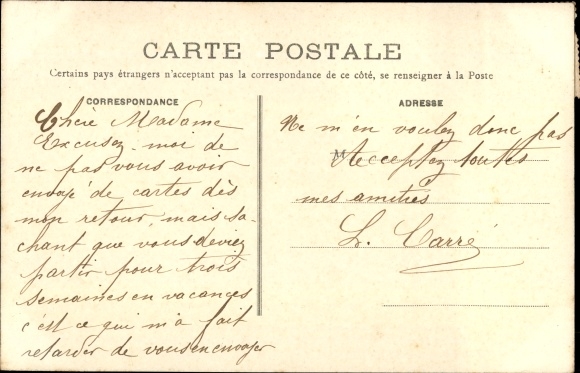 CARTE POSTALE
Certains pays étrangers n'acceptant pas la correspondance de ce côté, se renseigner à la Poste
CORRESPONDANCE
Chère Madame
Excusez-moi de
ne pas vous avoir
envoyé de cartes dès
mon retour, mais sa-
chant que vous deviez
partir pour trois
semaines en vacances
c'est ce qui m'a fait
retarder de vous en envoyer
ADRESSE
Ne m'en voulez donc pas
M
Acceptez toutes
mes amitiés
L. Carré